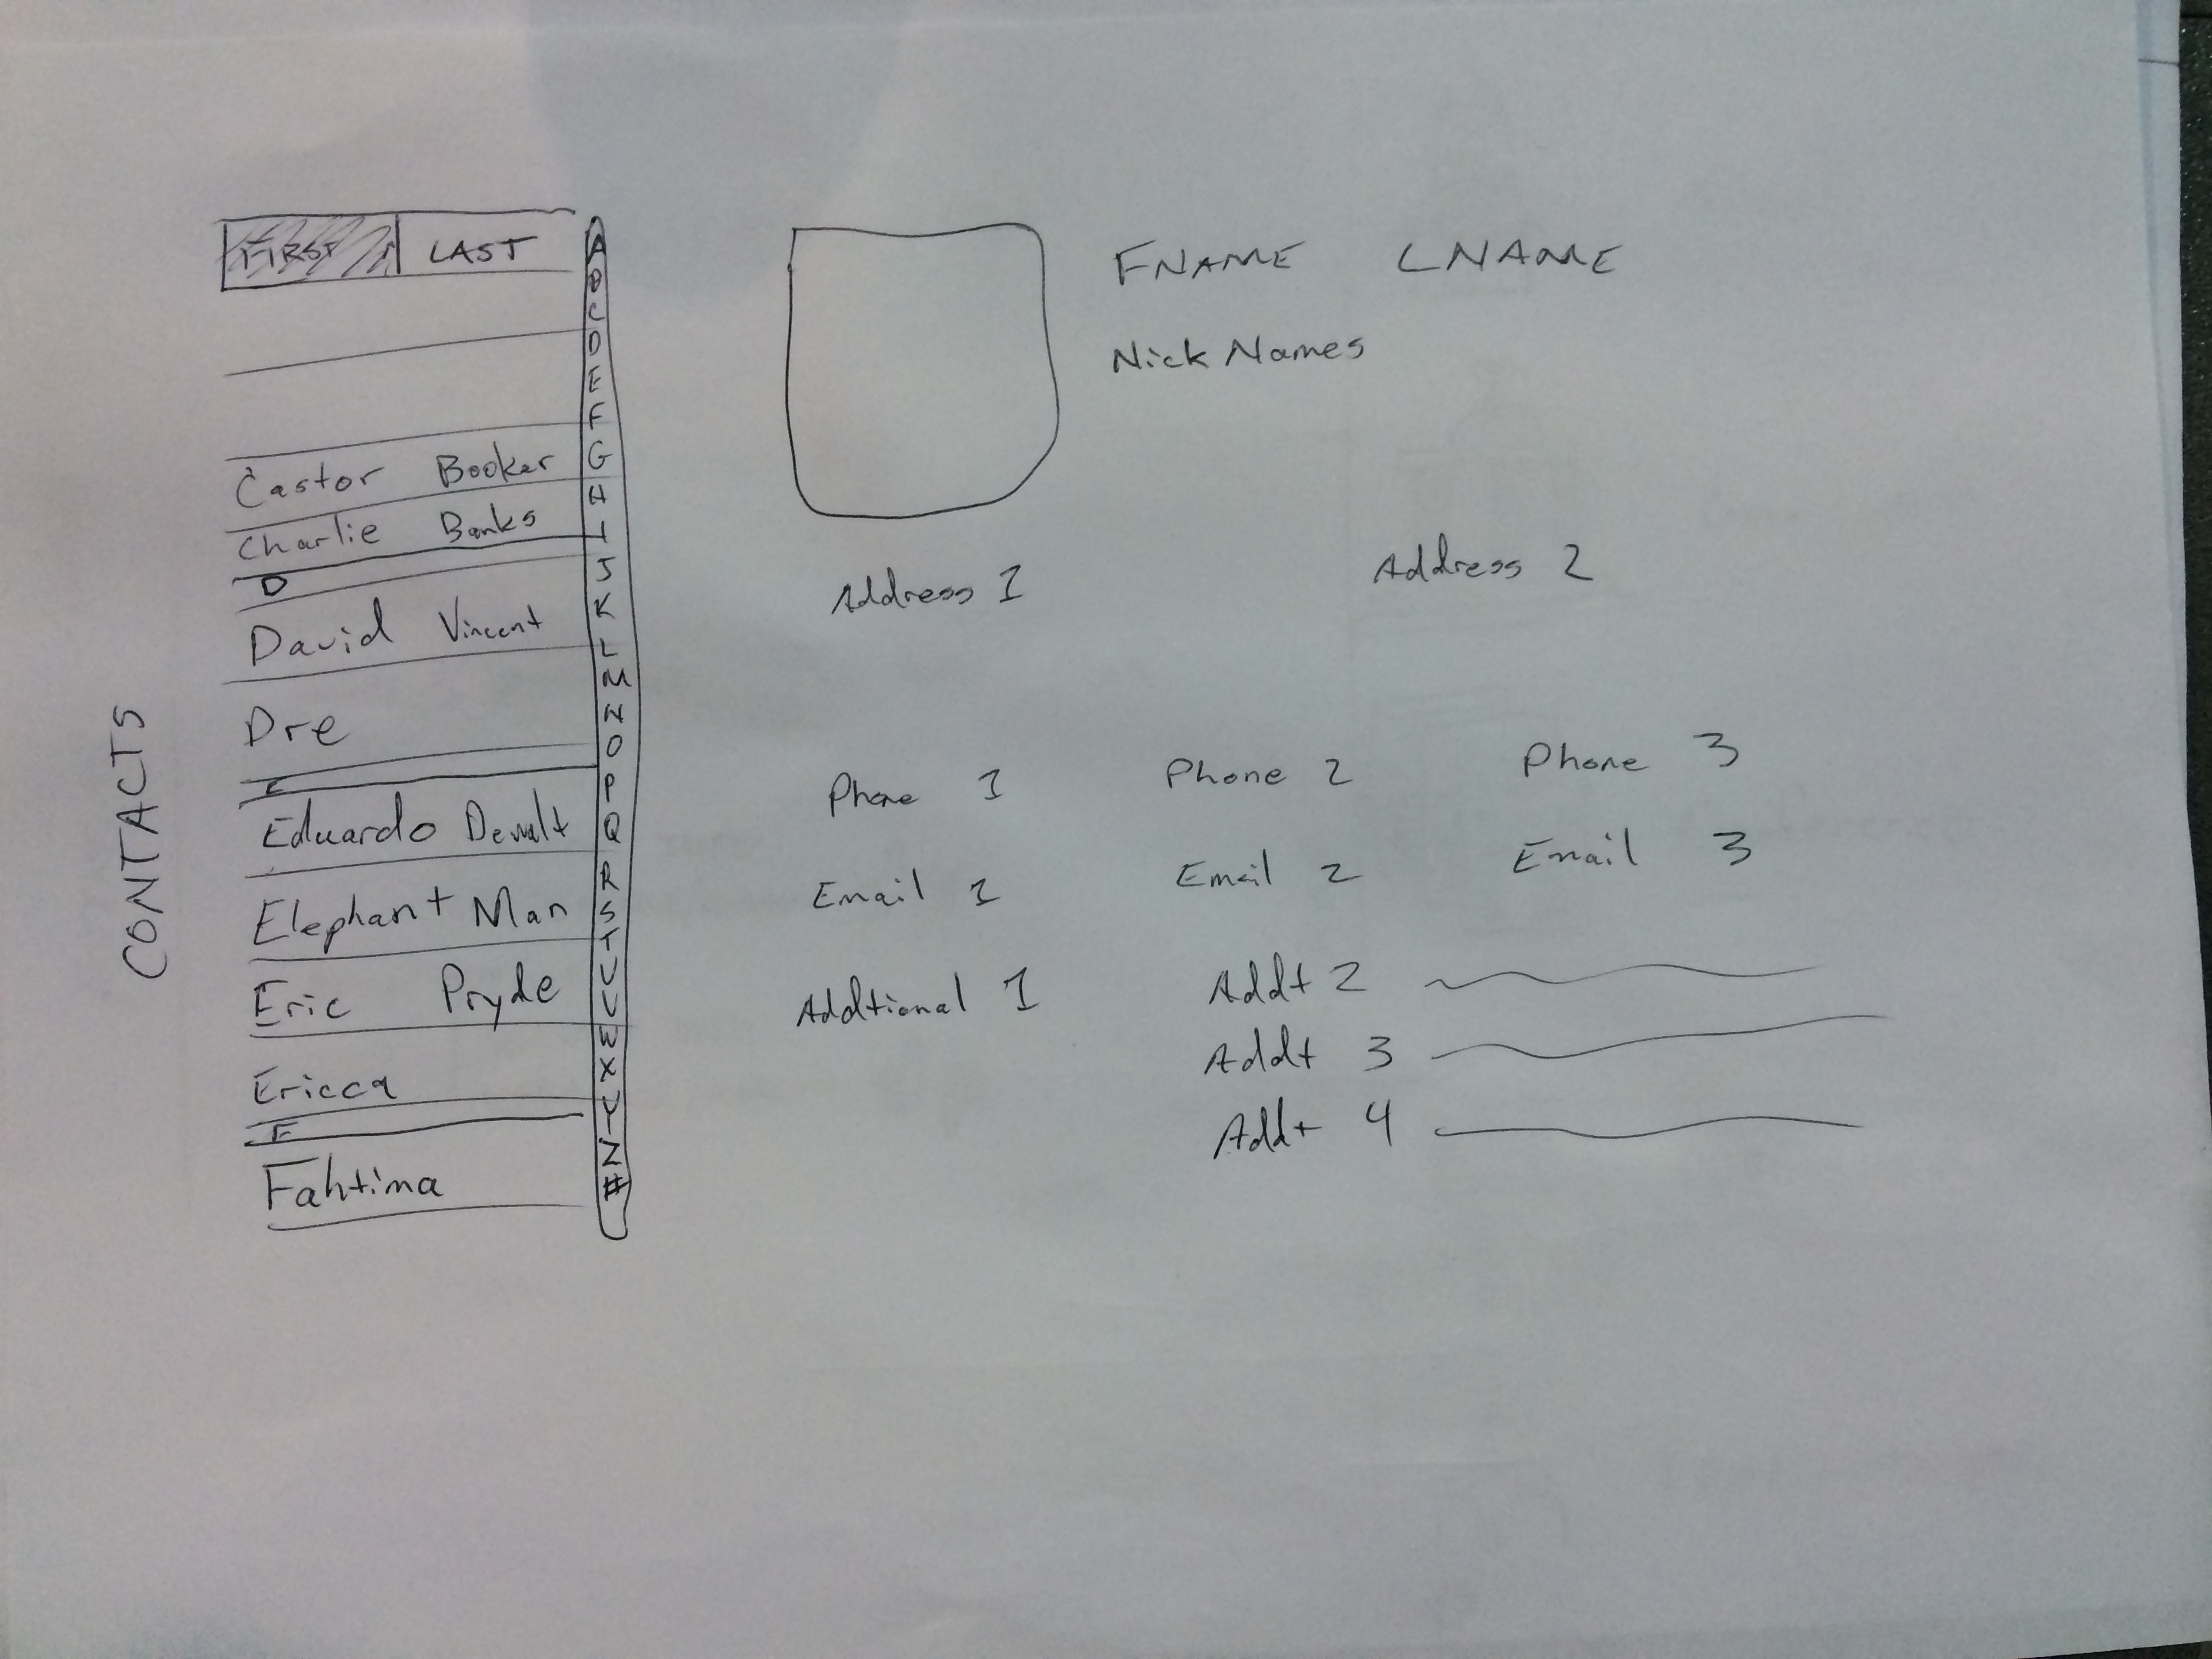 CONTACTS
FIRST LAST
Castor Booker
Charlie Banks
D
David Vincent
Dre
E
Eduardo Dewalt
Elephant Man
Eric Pryde
Ericca
F
Fahtima
A
B
C
D
E
F
G
H
I
J
K
L
M
N
O
P
Q
R
S
T
U
V
W
X
Y
Z
#
FNAME LNAME
Nick Names
Address 1 Address 2
Phone 1 Phone 2 Phone 3
Email 1 Email 2 Email 3
Addtional 1 Addt 2
Addt 3
Addt 4